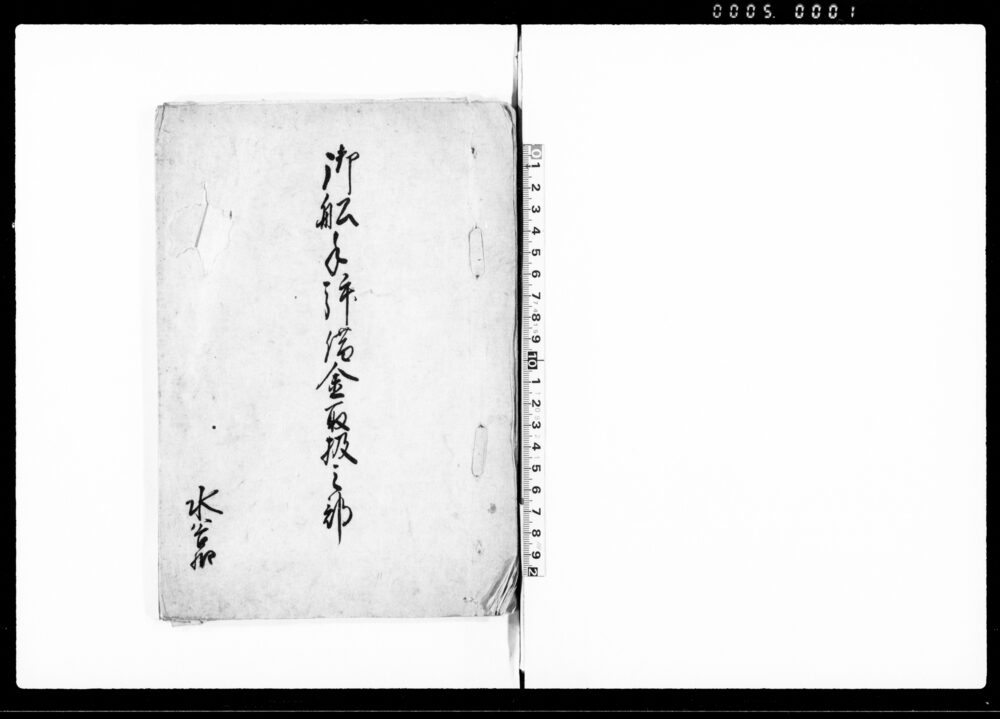 0005. 0001
御舩手拝借金取扱之部
水谷
0 1 2 3 4 5 6 7 8 9 10 1 2 3 4 5 6 7 8 9 2